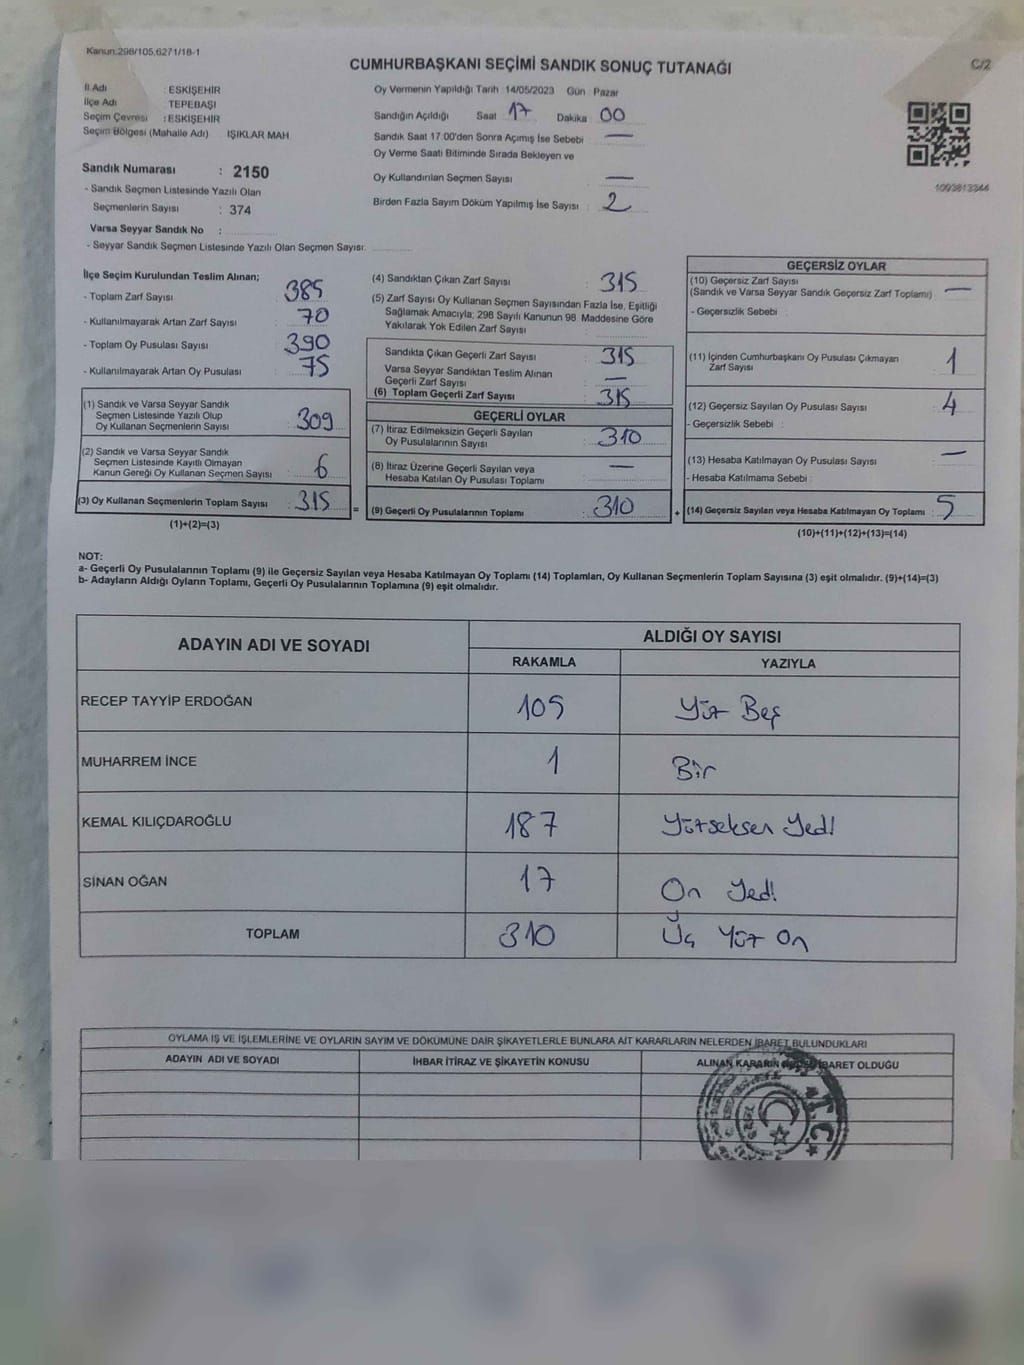 Kanun:298/105,6271/18-1
CUMHURBAŞKANI SEÇİMİ SANDIK SONUÇ TUTANAĞI
C/2
İl Adı : ESKİŞEHİR
İlçe Adı : TEPEBAŞI
Seçim Çevresi : ESKİŞEHİR
Seçim Bölgesi (Mahalle Adı) IŞIKLAR MAH
Sandık Numarası : 2150
- Sandık Seçmen Listesinde Yazılı Olan
Seçmenlerin Sayısı : 374
Varsa Seyyar Sandık No :
- Seyyar Sandık Seçmen Listesinde Yazılı Olan Seçmen Sayısı:
Oy Vermenin Yapıldığı Tarih :14/05/2023 Gün Pazar
Sandığın Açıldığı Saat 17 Dakika 00
Sandık Saat 17.00'den Sonra Açımış İse Sebebi : —
Oy Verme Saati Bitiminde Sırada Bekleyen ve
Oy Kullandırılan Seçmen Sayısı : —
Birden Fazla Sayım Döküm Yapılmış İse Sayısı : 2
1093813344
İlçe Seçim Kurulundan Teslim Alınan;
- Toplam Zarf Sayısı : 385
- Kullanılmayarak Artan Zarf Sayısı : 70
- Toplam Oy Pusulası Sayısı : 390
- Kullanılmayarak Artan Oy Pusulası : 75
(1) Sandık ve Varsa Seyyar Sandık
Seçmen Listesinde Yazılı Olup
Oy Kullanan Seçmenlerin Sayısı : 309
(2) Sandık ve Varsa Seyyar Sandık
Seçmen Listesinde Kayıtlı Olmayan
Kanun Gereği Oy Kullanan Seçmen Sayısı : 6
(3) Oy Kullanan Seçmenlerin Toplam Sayısı : 315 =
(1)+(2)=(3)
(4) Sandıktan Çıkan Zarf Sayısı : 315
(5) Zarf Sayısı Oy Kullanan Seçmen Sayısından Fazla İse, Eşitliği
Sağlamak Amacıyla; 298 Sayılı Kanunun 98. Maddesine Göre
Yakılarak Yok Edilen Zarf Sayısı :
Sandıkta Çıkan Geçerli Zarf Sayısı : 315
Varsa Seyyar Sandıktan Teslim Alınan
Geçerli Zarf Sayısı : —
(6) Toplam Geçerli Zarf Sayısı : 315
GEÇERLİ OYLAR
(7) İtiraz Edilmeksizin Geçerli Sayılan
Oy Pusulalarının Sayısı : 310
(8) İtiraz Üzerine Geçerli Sayılan veya
Hesaba Katılan Oy Pusulası Toplamı : —
(9) Geçerli Oy Pusulalarının Toplamı : 310 +
GEÇERSİZ OYLAR
(10) Geçersiz Zarf Sayısı
(Sandık ve Varsa Seyyar Sandık Geçersiz Zarf Toplamı) : —
- Geçersizlik Sebebi :
(11) İçinden Cumhurbaşkanı Oy Pusulası Çıkmayan
Zarf Sayısı : 1
(12) Geçersiz Sayılan Oy Pusulası Sayısı : 4
- Geçersizlik Sebebi :
(13) Hesaba Katılmayan Oy Pusulası Sayısı : —
- Hesaba Katılmama Sebebi :
(14) Geçersiz Sayılan veya Hesaba Katılmayan Oy Toplamı : 5
(10)+(11)+(12)+(13)=(14)
NOT:
a- Geçerli Oy Pusulalarının Toplamı (9) ile Geçersiz Sayılan veya Hesaba Katılmayan Oy Toplamı (14) Toplamları, Oy Kullanan Seçmenlerin Toplam Sayısına (3) eşit olmalıdır. (9)+(14)=(3)
b- Adayların Aldığı Oyların Toplamı, Geçerli Oy Pusulalarının Toplamına (9) eşit olmalıdır.
ADAYIN ADI VE SOYADI
ALDIĞI OY SAYISI
RAKAMLA YAZIYLA
RECEP TAYYİP ERDOĞAN 105 Yüz Beş
MUHARREM İNCE 1 Bir
KEMAL KILIÇDAROĞLU 187 Yüzseksen Yedi
SİNAN OĞAN 17 On Yedi
TOPLAM 310 Üç Yüz On
OYLAMA İŞ VE İŞLEMLERİNE VE OYLARIN SAYIM VE DÖKÜMÜNE DAİR ŞİKAYETLERLE BUNLARA AİT KARARLARIN NELERDEN İBARET BULUNDUKLARI
ADAYIN ADI VE SOYADI İHBAR İTİRAZ VE ŞİKAYETİN KONUSU ALINAN KARARIN İBARET OLDUĞU
T.C.